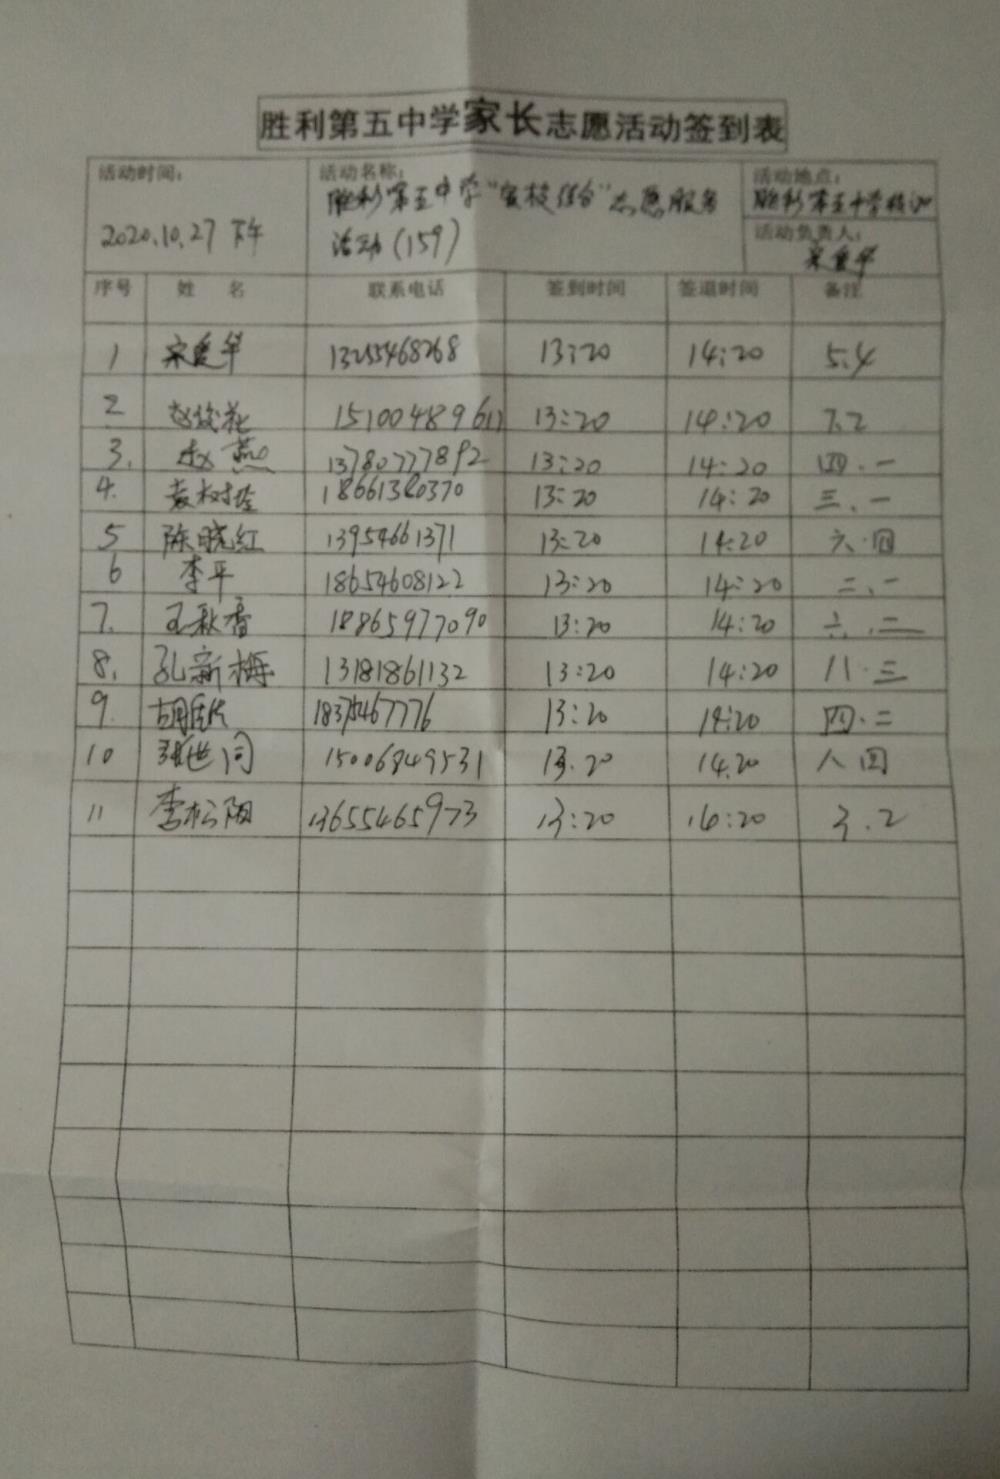 胜利第五中学家长志愿活动签到表
活动时间： 活动名称： 活动地点：
胜利第五中学"家校任合"志愿服务 胜利第五中学校门口
2020.10.27 下午 活动(159) 活动负责人：
宋爱华
序号 姓 名 联系电话 签到时间 签退时间 备注
1 宋爱华 13255468268 13:20 14:20 5.4
2 15100489611 13:20 14:20 7.2
3. 赵燕 13780777892 13:20 14:20 四.一
4. 袁树 18661380370 13:20 14:20 三.一
5 陈晓红 13954661371 13:20 14:20 六.四
6 李平 18654608122 13:20 14:20 二.一
7. 王秋香 18865977090 13:20 14:20 六.二
8. 孔新梅 13181861132 13:20 14:20 八.三
9. 13:20 14:20 四.二
10 张世同 15006849531 13.20 14.20 八四
11 李松阳 13655465973 13:20 14:20 3.2